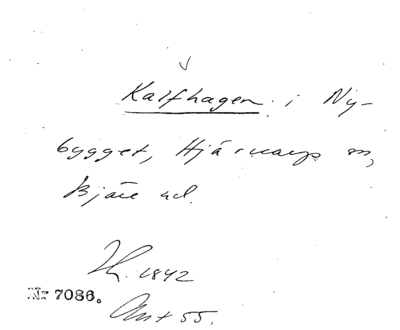 Kalfhagen i Ny-
bygget, Hjärnarps sn,
Bjäre hd.
1842
Nr 7086.
Ant 55.